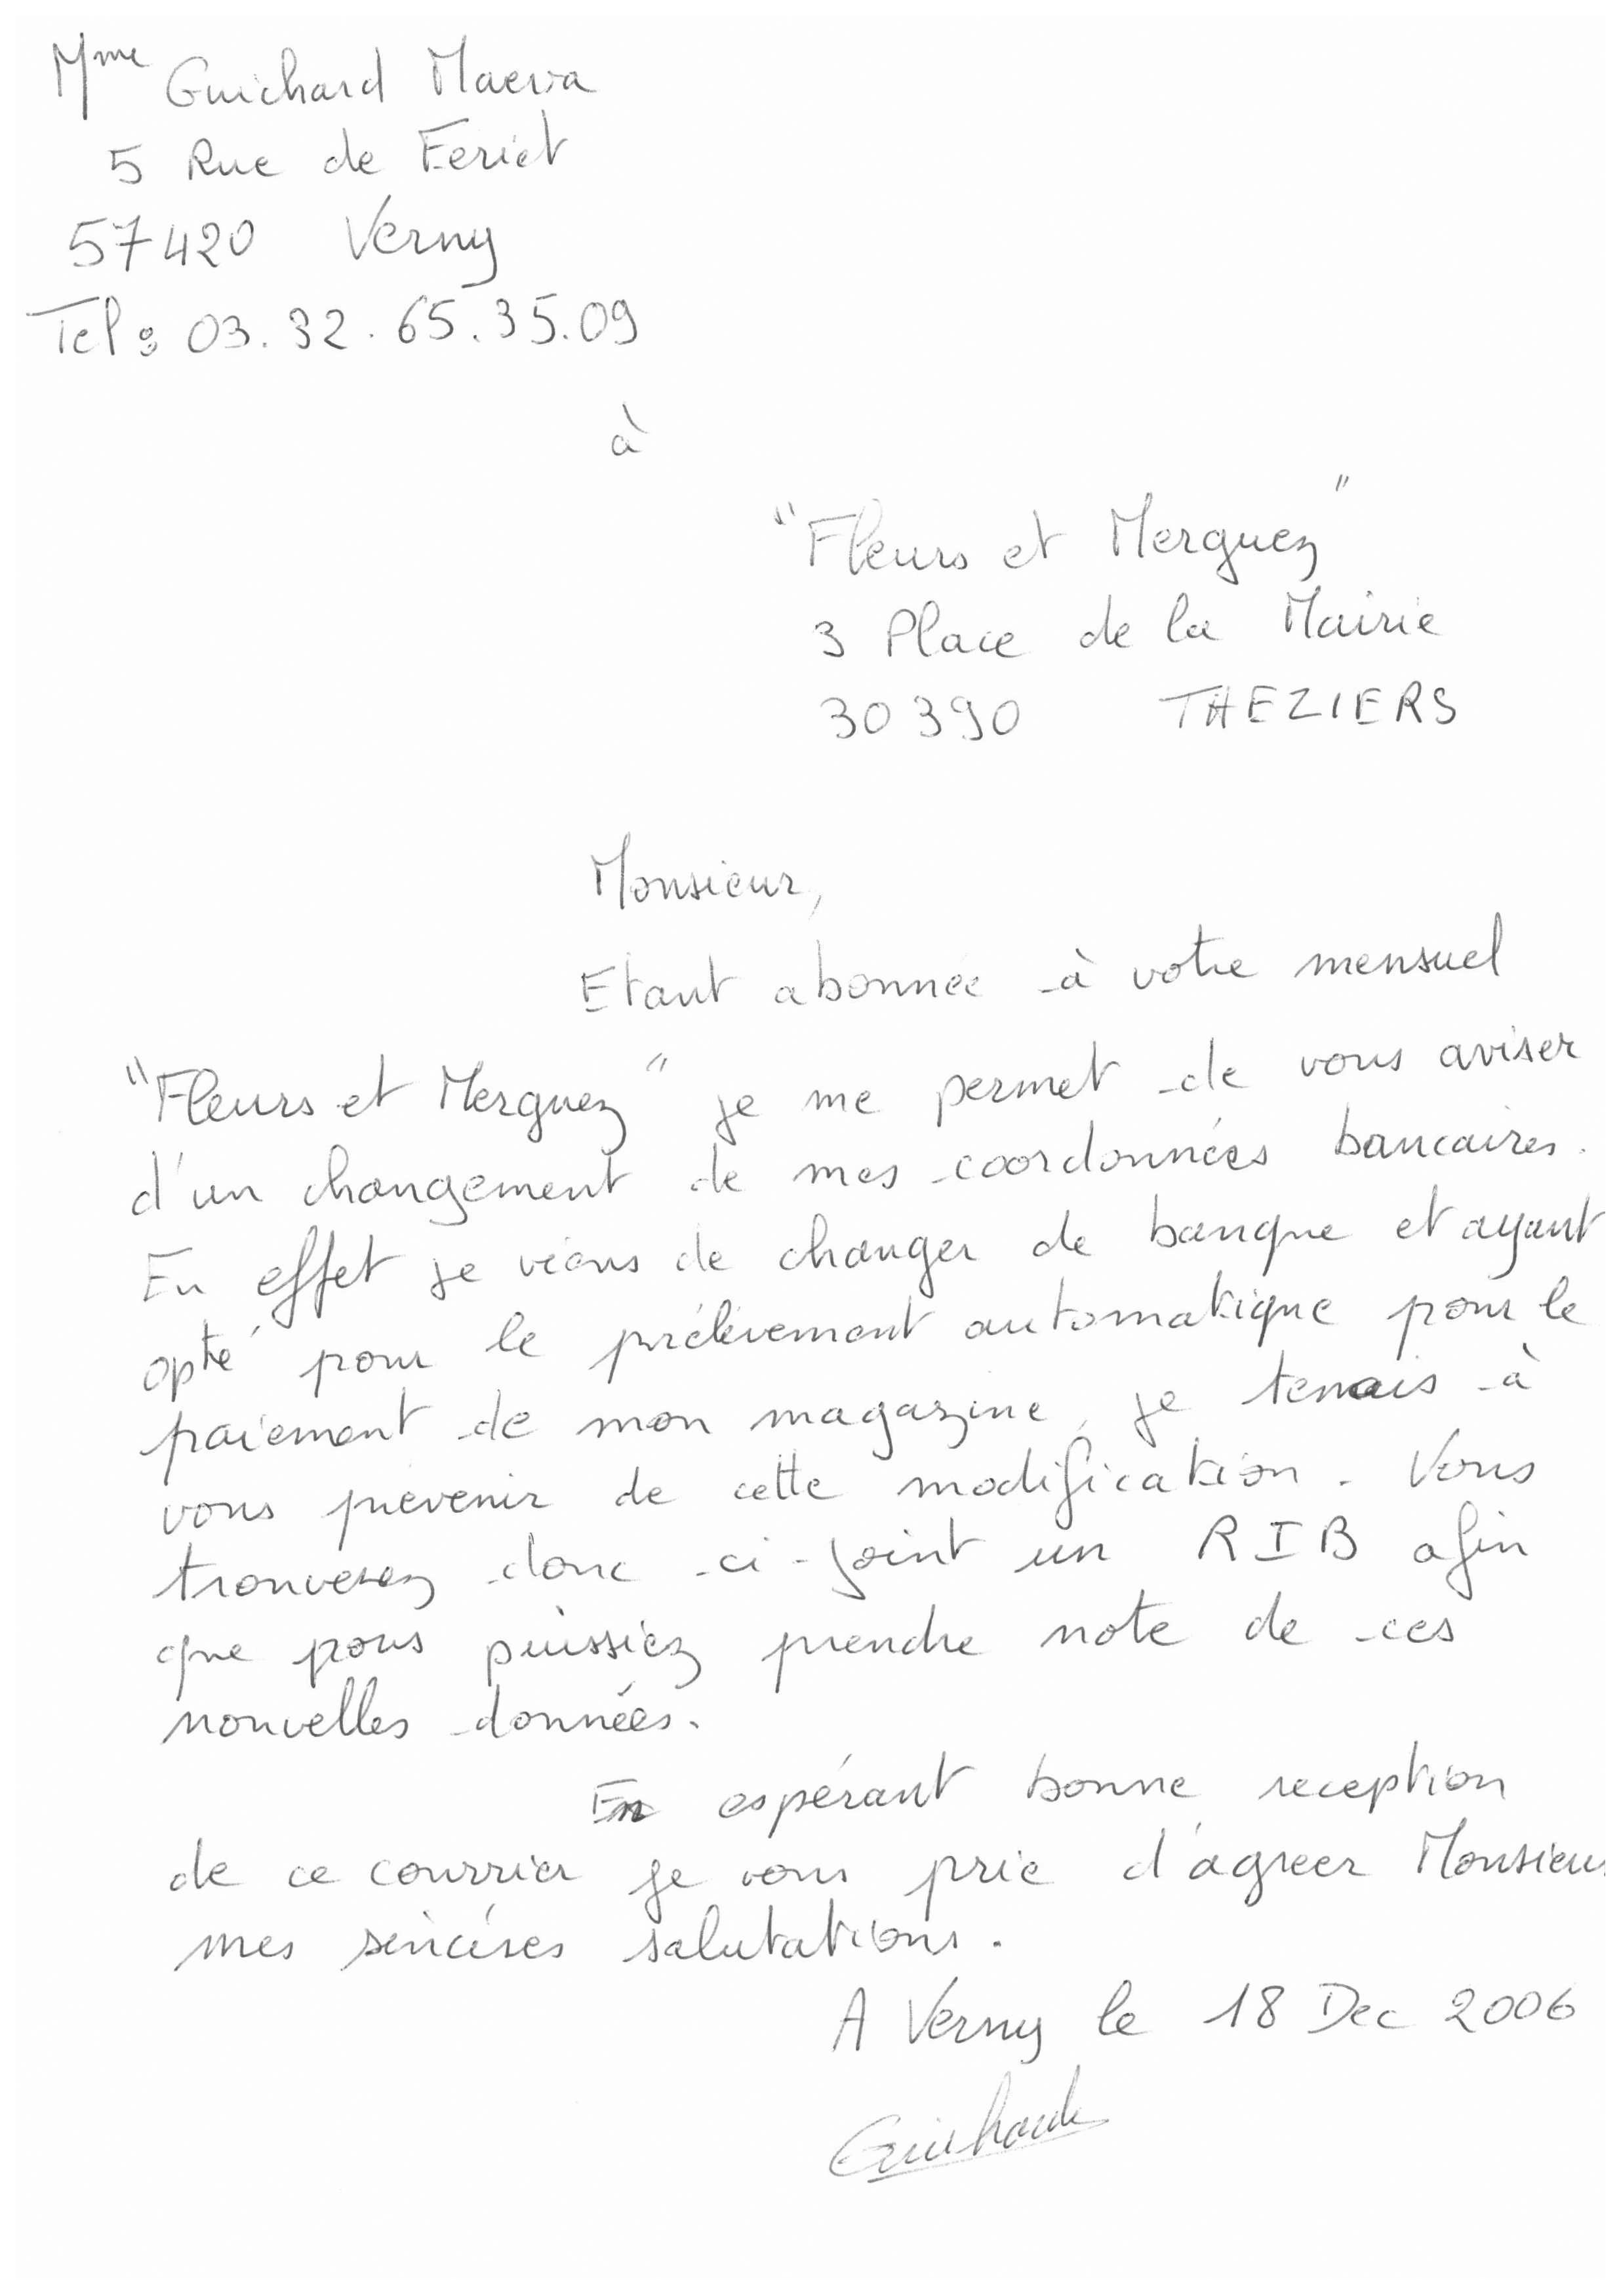 Mme Guichard Maeva
5 Rue de Feriet
57420 Verny
Tel : 03.32.65.35.09
à
"Fleurs et Merguez"
3 Place de la Mairie
30390 THEZIERS
Monsieur,
Etant abonnée à votre mensuel
"Fleurs et Merguez" je me permet de vous aviser
d'un changement de mes coordonnées bancaires.
En effet je viens de changer de banque et ayant
opté pour le prélèvement automatique pour le
paiement de mon magazine, je tenais à
vous prevenir de cette modification. Vous
trouverez donc ci-joint un RIB afin
que pous puissiez prendre note de ces
nouvelles données.
En espérant bonne reception
de ce courrier je vous prie d'agreer Monsieur
mes sincères salutations.
A Verny le 18 Dec 2006
Guichard